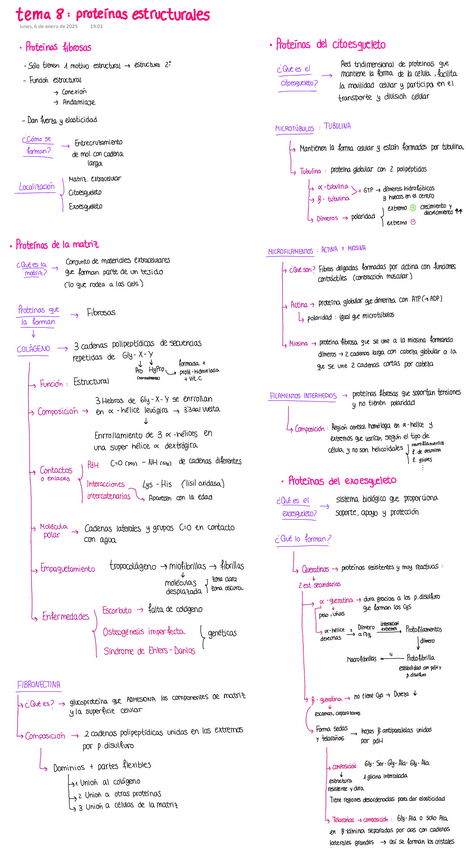 tema 8: proteínas estructurales
lunes, 6 de enero de 2025 19:01
• Proteínas fibrosas
- Sólo tienen 1 motivo estructural → estructura 2ª
- Función estructural
→ Conexión
→ Andamiaje
- Dan fuerza y elasticidad
¿Cómo se forman? → Entrecruzamiento
de mol. con cadena
larga
Localización
Matriz extracelular
Citoesqueleto
Exoesqueleto
• Proteínas de la matriz
¿Qué es la matriz? → Conjunto de materiales extracelulares
que forman parte de un tejido
(lo que rodea a las céls)
Proteínas que la forman → Fibrosas
COLÁGENO → 3 cadenas polipeptídicas de secuencias
repetidas de Gly-X-Y
Pro HyPro
formada x
prolil-hidroxilasa
+ vit. C
Función: Estructural
Composición → 3 Hebras de Gly-X-Y se enrollan
en α-hélice levógira → 3'3aa/vuelta
↓
Enrollamiento de 3 α-hélices en
una super hélice α dextrógira
Contactos o enlaces
PdH C=O - NH de cadenas diferentes
Interacciones intercatenarias
Lys - His (lisil oxidasa)
Aparecen con la edad
Molécula polar → Cadenas laterales y grupos C=O en contacto
con agua
Empaquetamiento tropocolágeno → miofibrillas → fibrillas
moléculas desplazadas
zona clara
zona oscura
Enfermedades
Escorbuto → falta de colágeno
Osteogénesis imperfecta
Síndrome de Ehlers-Danlos
genéticas
FIBRONECTINA
¿Qué es? → glucoproteína que ADHESIONA los componentes de matriz
y la superficie celular
Composición → 2 cadenas polipeptídicas unidas en los extremos
por p. disulfuro
Dominios + partes flexibles
→ 1 Unión al colágeno
→ 2 Unión a otras proteínas
→ 3 Unión a células de la matriz
• Proteínas del citoesqueleto
¿Qué es el citoesqueleto? → Red tridimensional de proteínas que
mantiene la forma de la célula, facilita
la movilidad celular y participa en el
transporte y división celular
MICROTÚBULOS: TUBULINA
Mantienen la forma celular y están formados por tubulina.
Tubulina: proteína globular con 2 polipéptidos
→ α-tubulina
→ β-tubulina
GTP → dímeros
Dímeros → polaridad
extremo ⊕ crecimiento y
decrecimiento ↑↑
extremo ⊖
MICROFILAMENTOS: ACTINA Y MIOSINA
¿Qué son? Fibras delgadas formadas por actina con funciones
contráctiles (contracción muscular)
Actina → Proteína globular que dimeriza con ATP (→ADP)
polaridad: igual que microtúbulos
Miosina → proteína fibrosa que se une a la miosina formando
dímeros → 2 cadenas larga, con cabeza globular a la
que se unen 2 cadenas cortas por cabeza
FILAMENTOS INTERMEDIOS → proteínas fibrosas que soportan tensiones
y no tienen polaridad
Composición: Región central homóloga en α-hélice y
extremos que varían según el tipo de
célula, y no son helicoidales
f. de desmina
f. gliales
• Proteínas del exoesqueleto
¿Qué es el exoesqueleto? → sistema biológico que proporciona
soporte, apoyo y protección
¿Qué lo forman?
Queratinas → proteínas resistentes y muy reactivas:
2 est. secundarias
α-queratina → dura gracias a los p. disulfuro
que forman las Cys
pelo, uñas
α-hélice dextrógira → Dímero → Protofilamentos
dímero
Macrofibrillas ← Protofibrilla
estabilidad con pdH y
p. disulfuro
β-queratina → no tiene Cys → Dureza ↓
escamas, caparazones
Forma sedas y telarañas → hojas β antiparalelas unidas
por pdH
composición Gly-Ser-Gly-Ala-Gly-Ala
1 glicina intercalada
estructura resistente y dura
Tiene regiones desordenadas para dar elasticidad
Telarañas → composición: Gly-Ala o solo Ala
en β-lámina separadas por aas con cadenas
laterales grandes → así se forman los cristales